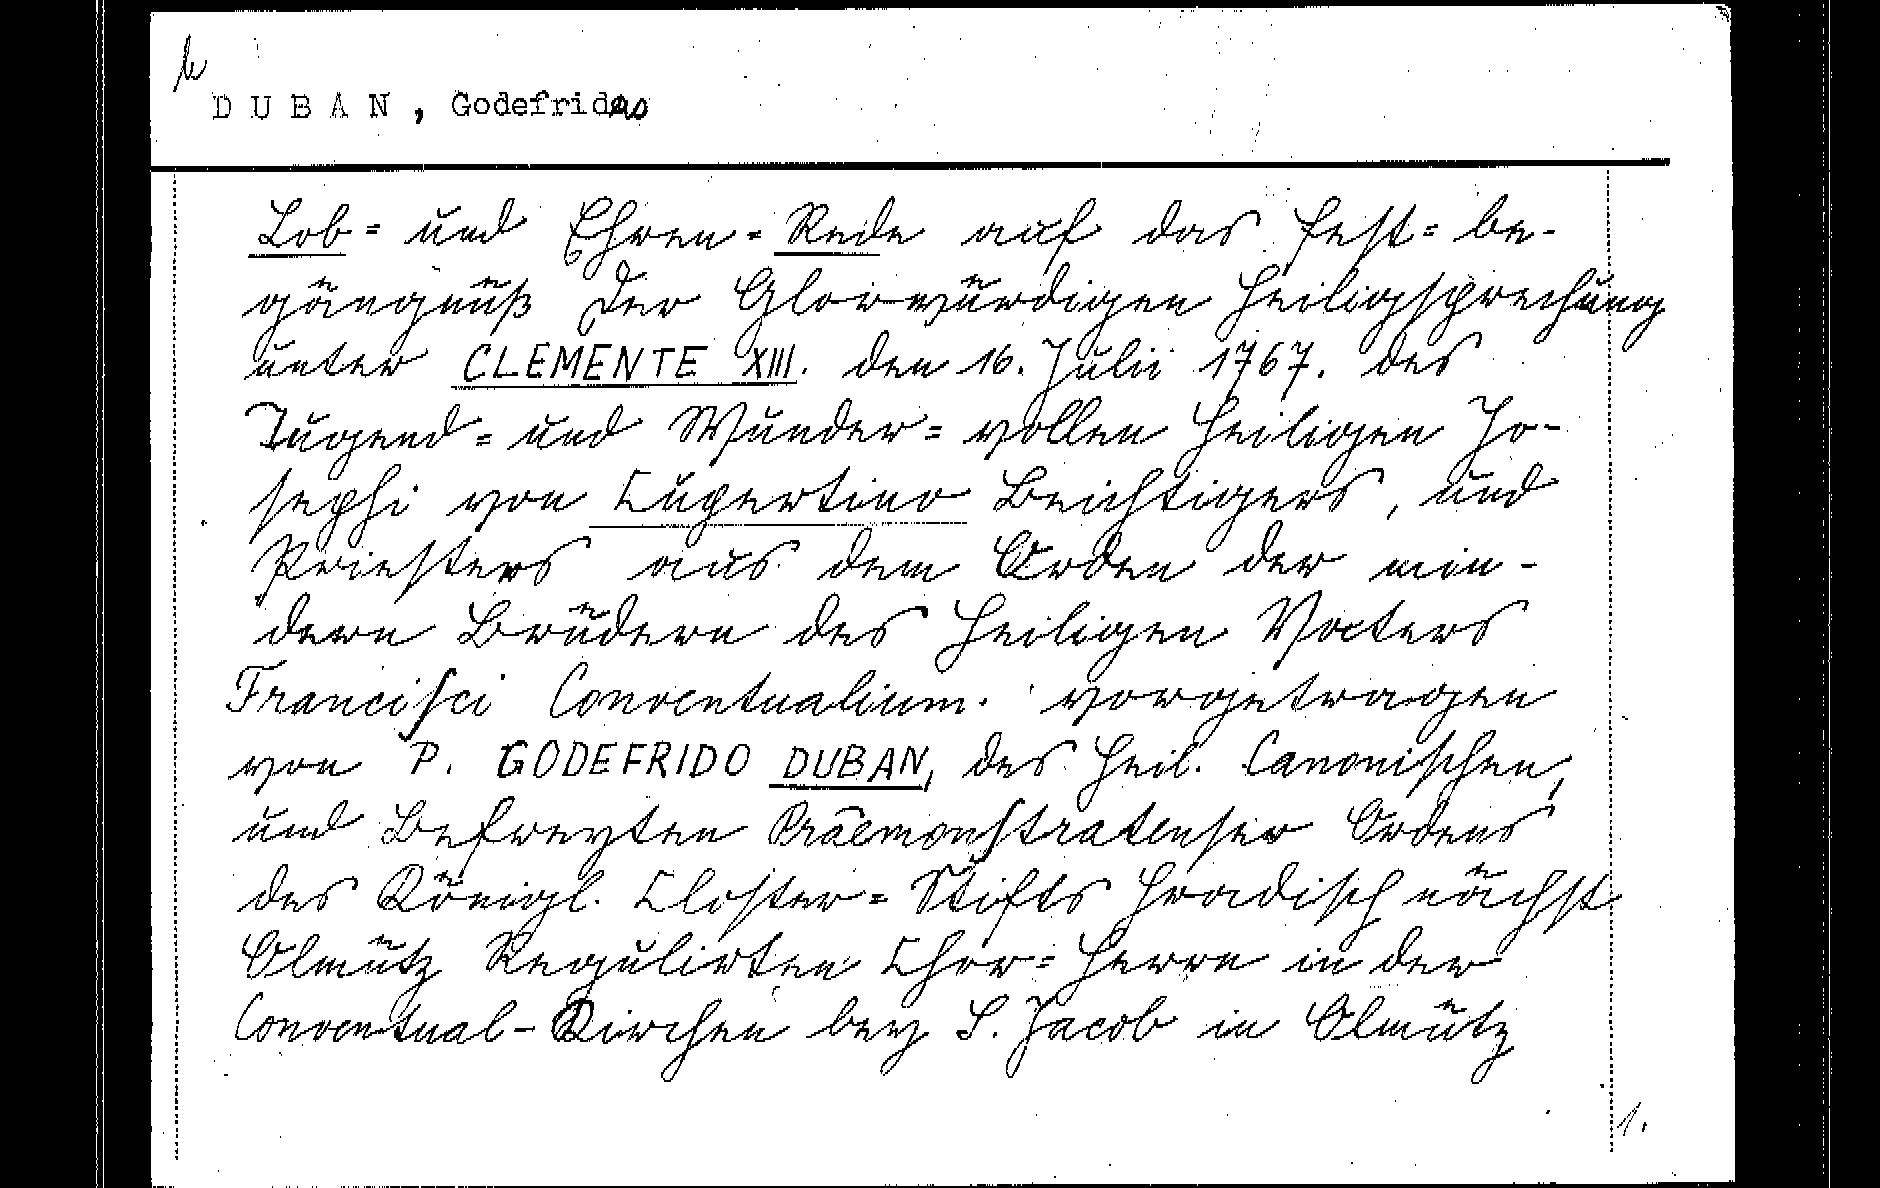 DUBAN, Godefridus
Lob= und Ehren=Rede auf das Fest=be-
gängnüß Der Glorwürdigen Heiligsprechung
unter CLEMENTE XIII. den 16. Julii 1767. des
Tugend= und Wunder=vollen Heiligen Jo-
sephi von Cupertino Beichtigers, und
Priesters aus dem Orden der min-
dern Brüdern des Heiligen Vaters
Franciſci Conventualium. vorgetragen
von P. GODEFRIDO DUBAN, des Heil. Canonischen,
und Befreyten Präemonſtratenser Ordens
des Königl. Closter=Stifts Hradisch nächst
Olmütz Regulirten Chor=Herrn in der
Conventual-Kirchen bey S. Jacob in Olmütz
1.